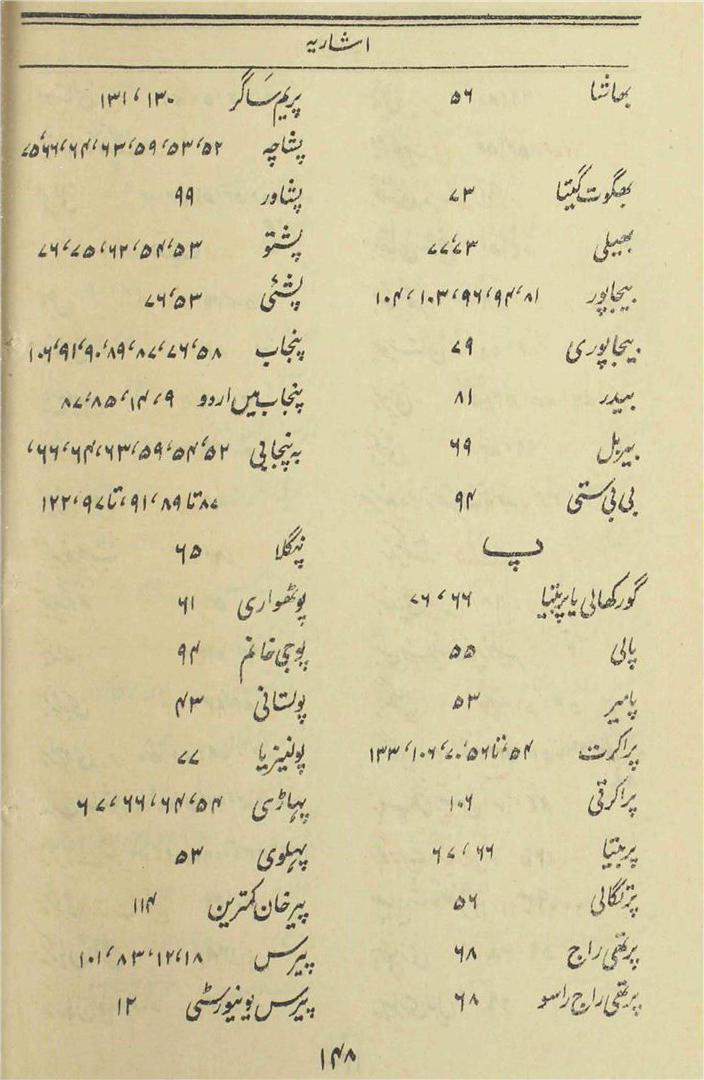 اشاریہ
بھاشا ۵۶
بھگوت گیتا ۷۳
بھیلی ۷۳، ۷۷
بیجاپور ۱۸، ۹۴، ۹۶، ۱۰۳، ۱۰۴
بیجاپوری ۷۹
بیدر ۸۱
بیربل ۶۹
بی بی ستی ۹۴
پ
گورکھالی یا پربتیا ۶۶، ۷۶
پالی ۵۵
پامیر ۵۳
پراکرت ۵۴، تا ۵۶، ۷۰، ۱۰۶، ۱۳۳
پراکرتی ۱۰۶
پربتیا ۶۶، ۶۷
پرتگالی ۵۶
پرتھی راج ۶۸
پرتھی راج راسو ۶۸
پریم ساگر ۱۳۰، ۱۳۱
پشاچہ ۵۲، ۵۳، ۵۹، ۶۳، ۶۴، ۶۶، ۷۵
پشاور ۹۹
پشتو ۵۳، ۵۴، ۶۲، ۷۵، ۷۶
پشئی ۵۳، ۷۶
پنجاب ۵۸، ۷۶، ۸۷، ۸۹، ۹۰، ۹۱، ۱۰۶
پنجاب میں اردو ۹، ۱۴، ۸۵، ۸۷
پنجابی ۵۲، ۵۴، ۵۹، ۶۳، ۶۴، ۶۶،
۸۷ تا ۸۹، ۹۱، تا ۹۷، ۱۲۲
پنگلا ۶۵
پوٹھواری ۶۱
پوجی خانم ۹۴
پولستانی ۴۳
پولنیزیا ۷۷
پہاڑی ۵۴، ۶۴، ۶۶، ۶۷
پہلوی ۵۳
پیر خان کمترین ۱۱۴
پیرس ۱۸، ۱۲، ۸۳، ۱۰۱
پیرس یونیورسٹی ۱۲
۱۴۸